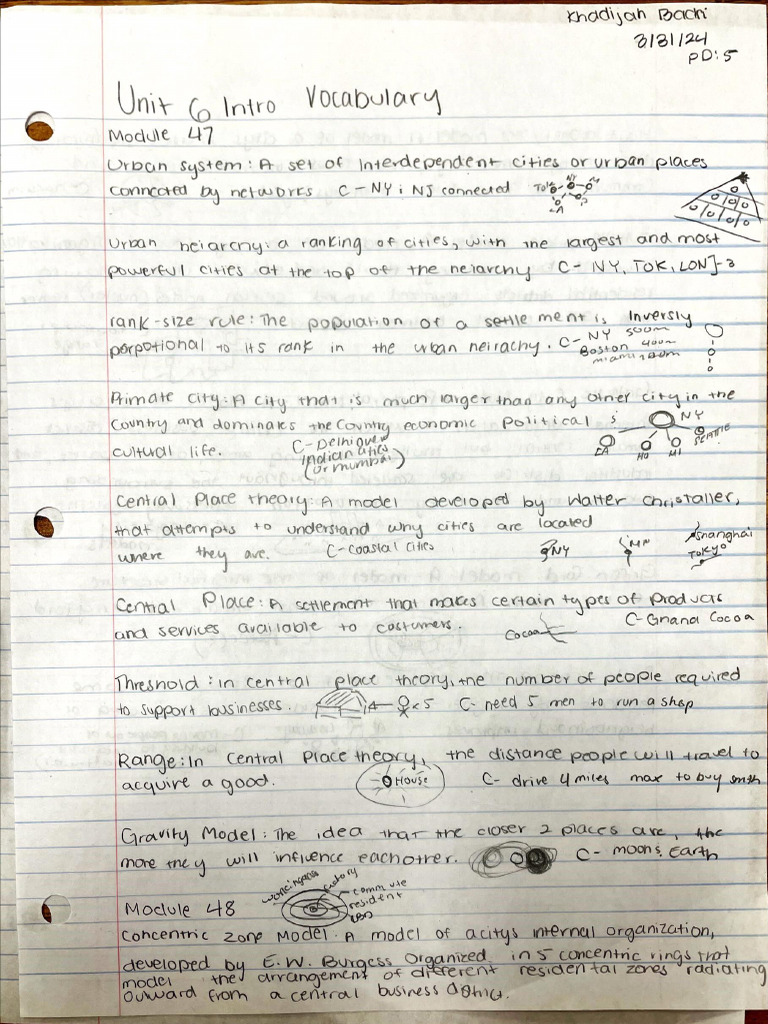 Khadijah Bachi
3/31/24
PD:5
Unit 6 Intro Vocabulary
Module 47
Urban system: A set of interdependent cities or urban places
connected by networks C-NY i NJ connected
TOK NY
LA
Urban heirarchy: a ranking of cities, with the largest and most
powerful cities at the top of the heirarchy C- NY, TOK, LON]-3
rank-size rule: The population of a settlement is Inversly
porpotional to its rank in the urban heirachy. C- NY 500m
Boston 400m
miami 200m
Primate city: A city that is much larger than any other city in the
Country and dominates the country economic political i
cultural life.
C-Delhi
indian cities
(or mumbai)
NY
LA HO MI SEATTLE
Central Place theory: A model developed by Walter Christaller,
that attempts to understand why cities are located
where they are. C-coastal cities
NY MN Shanghai
TOKYO
Central Place: A settlement that makes certain types of products
and services available to costumers. Cocoa C-Ghana Cocoa
Threshold: in central place theory, the number of people required
to support businesses. x5 C- need 5 men to run a shop
Range: In Central Place theory, the distance people will travel to
acquire a good. House C- drive 4 miles max to buy smth
Gravity Model: The idea that the closer 2 places are, the
more they will influence eachother. C- moon & Earth
factory
commute
resident
CBD
Module 48
Concentric Zone Model: A model of a citys internal organization,
developed by E.W. Burgess organized in 5 concentric rings that
model the arrangement of different residental zones radiating
outward from a central business district.